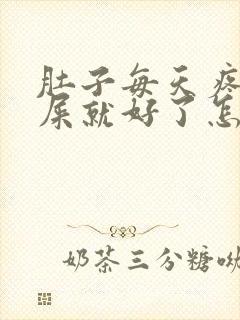 肚子每天疼
屎就好了怎
奶茶三分糖呦